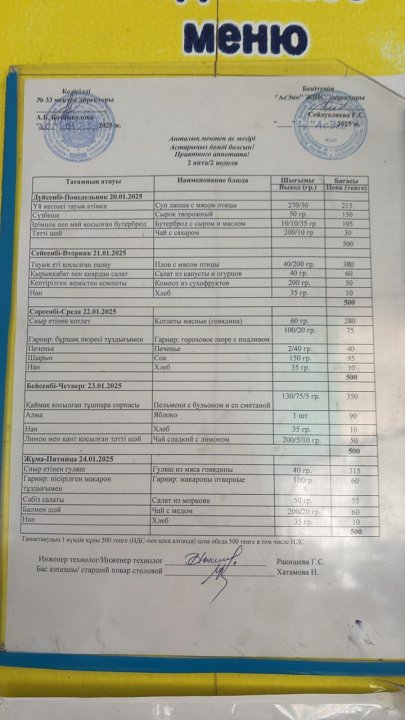 меню
Келісілді
№ 33 мектеп директоры
2025 ж.
Бекітемін
"АсЭко" ЖШС директоры
Сейдуалиева Г.С.
2025 ж.
Апталық мектеп ас мәзірі
Астарыңыз дәмді болсын!
Приятного аппетита!
2 апта/2 неделя
Тағамның атауы Наименование блюда Шығымы Выход (гр.) Бағасы Цена (тенге)
Дүйсенбі-Понедельник 20.01.2025
Үй кеспесі тауық етімен Суп лапша с мясом птицы 270/30 215
Сүзбеше Сырок творожный 50 гр. 150
Ірімшік пен май қосылған бутерброд Бутерброд с сыром и маслом 10/10/35 гр 105
Тәтті шай Чай с сахаром 200/10 гр 30
500
Сейсенбі-Вторник 21.01.2025
Тауық еті қосылған палау Плов с мясом птицы 40/200 гр. 380
Қырыққабат пен қиярдан салат Салат из капусты и огурцов 40 гр. 60
Кептірілген жемістен компоты Компот из сухофруктов 200 гр. 50
Нан Хлеб 35 гр. 10
500
Сәрсенбі-Среда 22.01.2025
Сиыр етінен котлет Котлеты мясные (говядина) 60 гр. 280
Гарнир: бұршақ пюресі тұздығымен Гарнир: гороховое пюре с подливом 100/20 гр. 75
Печенье Печенье 2/40 гр. 40
Шырын Сок 150 гр. 95
Нан Хлеб 35 гр. 10
500
Бейсенбі-Четверг 23.01.2025
Қаймақ қосылған тұшпара сорпасы Пельмени с бульоном и со сметаной 130/75/5 гр. 350
Алма Яблоко 1 шт 90
Нан Хлеб 35 гр. 10
Лимон мен қант қосылған тәтті шай Чай сладкий с лимоном 200/5/10 гр. 50
500
Жұма-Пятница 24.01.2025
Сиыр етінен гуляш Гуляш из мяса говядины 40 гр. 315
Гарнир: пісірілген макарон Гарнир: макароны отварные 100гр 60
тұздығымен
Сәбіз салаты Салат из моркови 50 гр. 55
Балмен шай Чай с медом 200/20 гр. 60
Нан Хлеб 35 гр. 10
500
Таңастанудың 1 күндік құны 500 тенге (НДС-пен қоса алғанда) цена обеда 500 тенге в том числе НДС
Инженер технолог/Инженер технолог Ракишева Г.С.
Бас аспазшы/ старший повар столовой Хатамова Н.